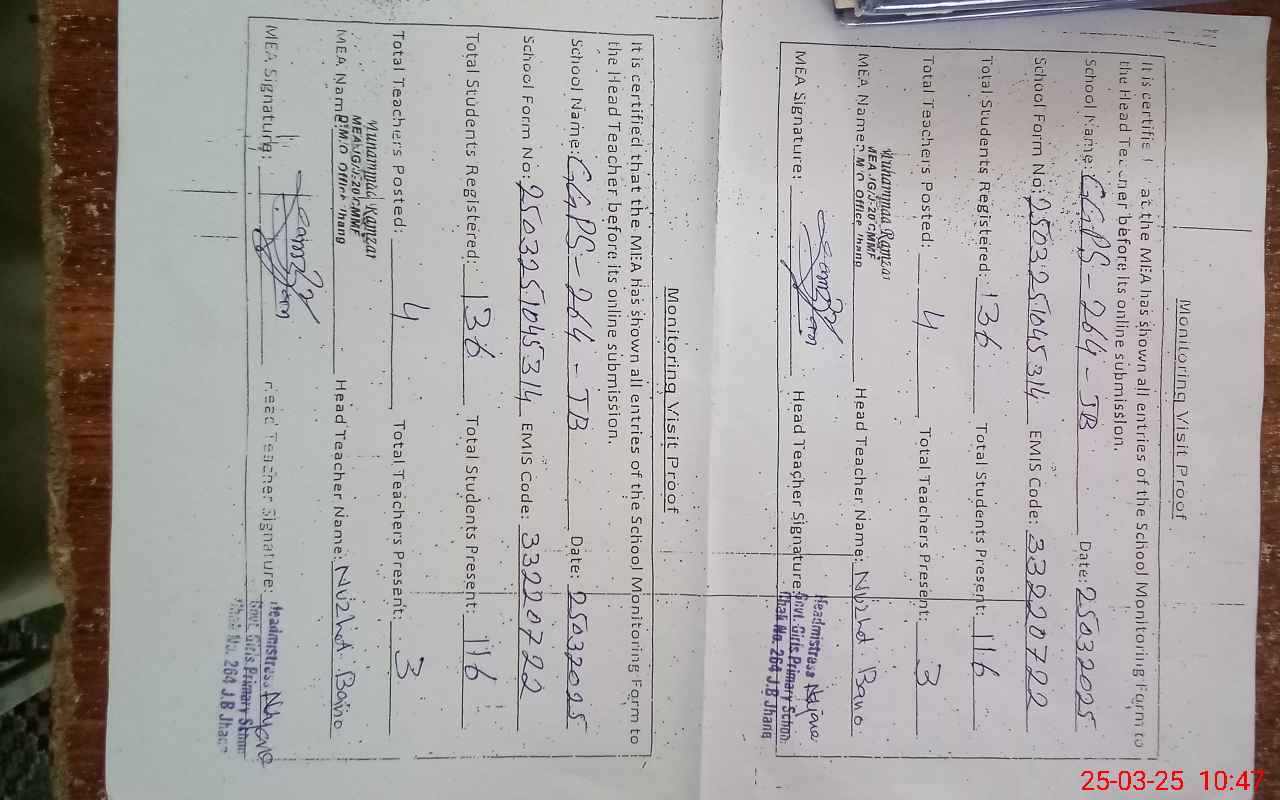 Monitoring Visit Proof
It is certified that the MEA has shown all entries of the School Monitoring Form to
the Head Teacher before its online submission.
School Name: GGPS-264-JB Date: 25032025
School Form No: 2503251045314 EMIS Code: 33220722
Total Students Registered: 136 Total Students Present: 116
Total Teachers Posted: 4 Total Teachers Present: 3
Muhammad Ramzan
MEA
MEA Name: Office Jhang Head Teacher Name: Nuzhat Bano
MEA Signature: Head Teacher Signature:
Headmistress
Govt. Girls Primary School
Chak No. 264 J.B Jhang
Monitoring Visit Proof
It is certified that the MEA has shown all entries of the School Monitoring Form to
the Head Teacher before its online submission.
School Name: GGPS-264-JB Date: 25032025
School Form No: 2503251045314 EMIS Code: 33220722
Total Students Registered: 136 Total Students Present: 116
Total Teachers Posted: 4 Total Teachers Present: 3
Muhammad Ramzan
MEA
MEA Name: Office Jhang Head Teacher Name: Nuzhat Bano
MEA Signature: Head Teacher Signature:
Headmistress
Govt. Girls Primary School
Chak No. 264 J.B Jhang
25-03-25 10:47